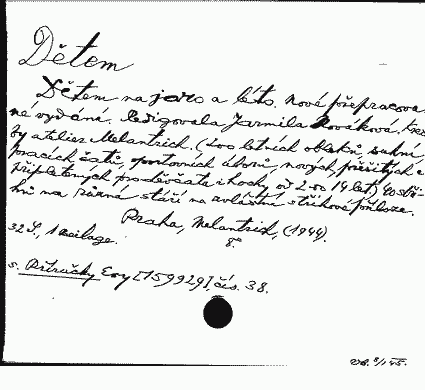 Dětem
Dětem na jaro a léto. Nové přepracova-
né vydání. Redigovala Jarmila Nováková. Kres-
by atelier Melantrich. (200 letních obleků, sukní,
pracích šatů, sportovních úborů, nových, přešitých a
připletených pro děvčata i hochy od 2 do 14 let.) 40 stři-
hů na různá stáří na zvláštní střihové příloze.
Praha, Melantrich, (1944).
8°.
32 S., 1 Beilage.
s. Příručky Evy [159929], čís. 38.